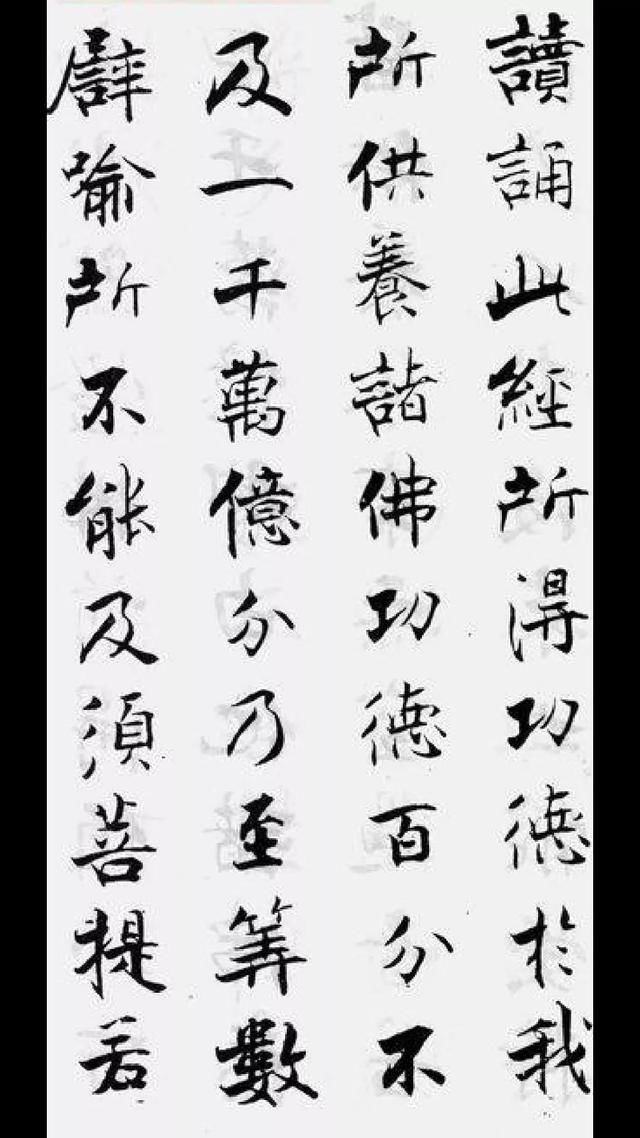 讀誦此經所得功德於我
所供養諸佛功德百分不
及一千萬億分乃至筭數
譬喻所不能及須菩提若